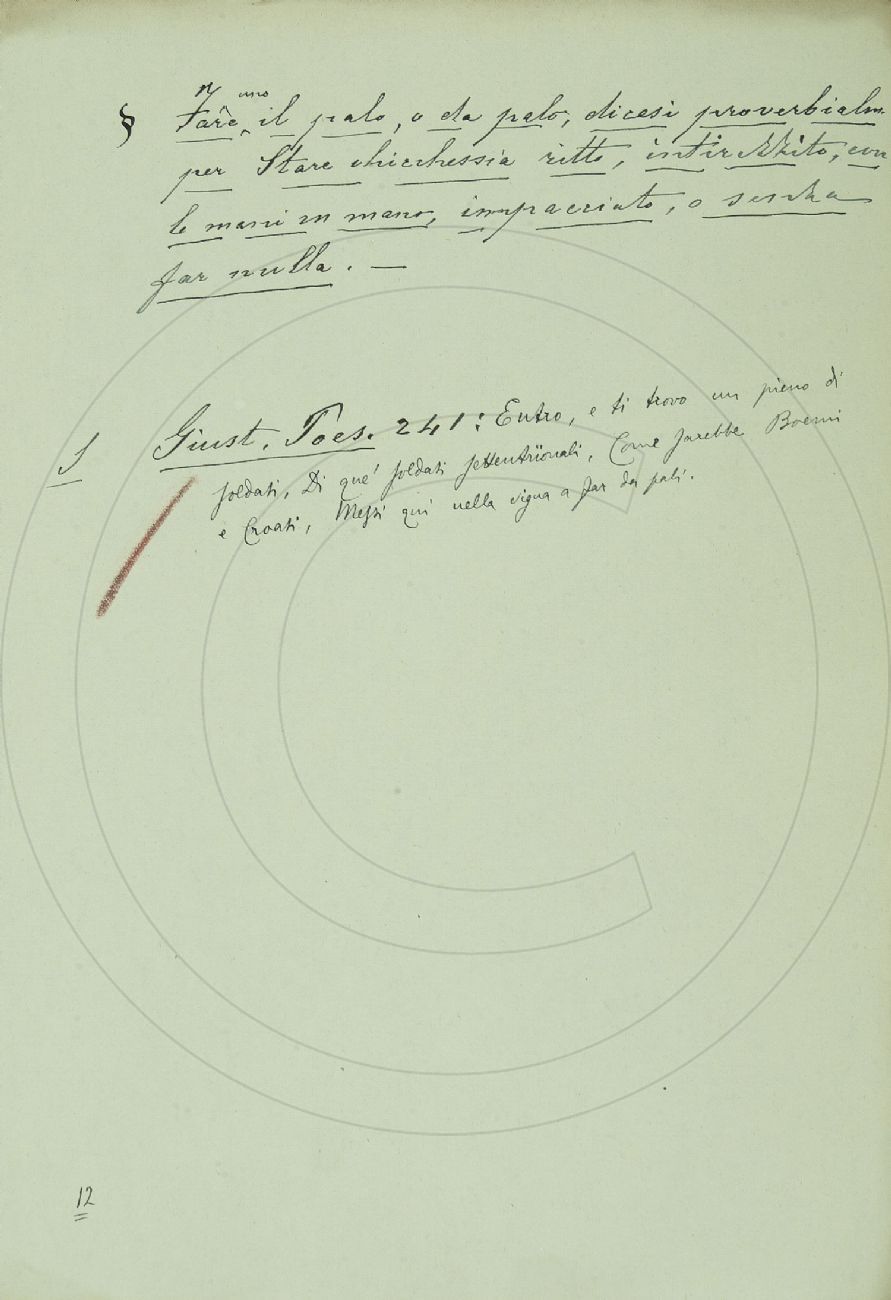 § Fare uno il palo, o da palo, dicesi proverbialm.
per Stare chicchessia ritto, intirizzito, con
le mani in mano, impacciato, o senza
far nulla. —
S Giust. Poes. 241: Entro, e ti trovo un pieno di
soldati, Di que' soldati settentrïonali, Come sarebbe Boemi
e Croati, Messi qui nella vigna a far da pali.
12